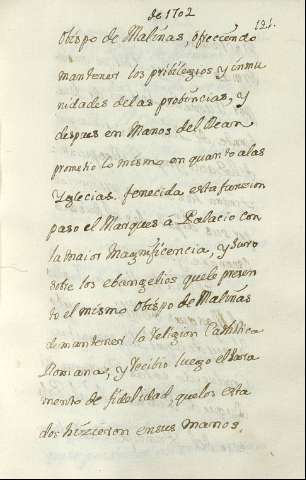 de 1702
121.
Obispo de Malinas, ofreciendo
mantener los pribilegios y inmu
nidades de las probincias, y
despues en Manos del Dean
prometio lo mismo en quanto alas
Yglecias. fenecida esta funsion
paso el Marques á Palacio con
la maior Magnificencia, y Juro
sobre los ebangelios que le presen
to el mismo Obispo de Maliñas
de mantener la Religion Catholica
Romana, y recibio luego el Jura
mento de fidelidad, quelos esta
dos hizieron en sus manos.